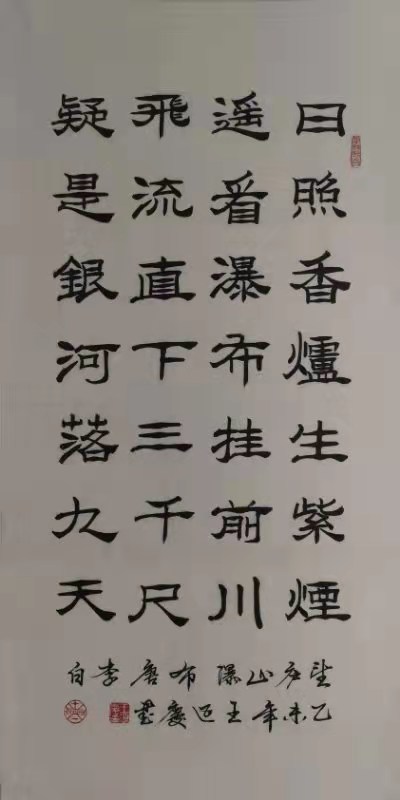 日照香爐生紫煙
遥看瀑布挂前川
飛流直下三千尺
疑是銀河落九天
望庐山瀑布唐李白
乙未年王慶書